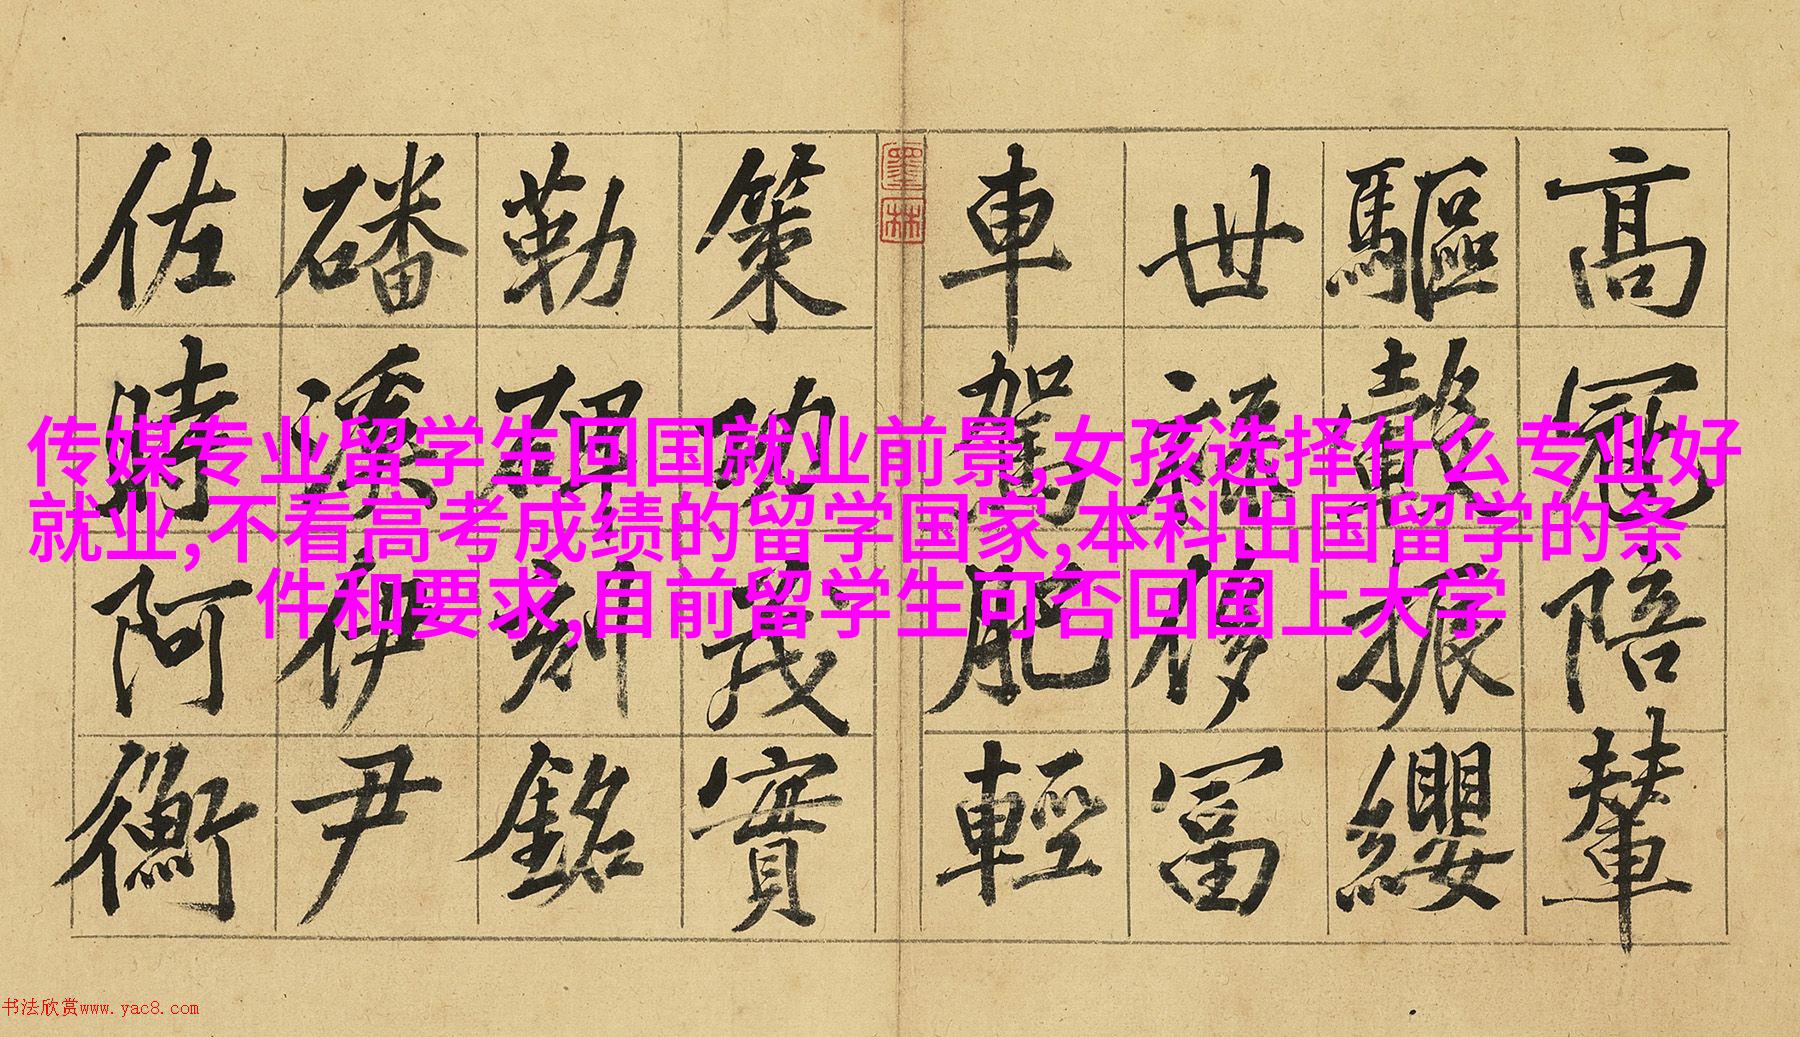 高冠陪輦
驅轂振纓
世禄侈冨
車駕肥輕
墨林
策功茂實
勒碑刻銘
磻溪伊尹
佐時阿衡
传媒专业留学生回国就业前景,女孩选择什么专业好
就业,不看高考成绩的留学国家,本科出国留学的条
件和要求,目前留学生可否回国上大学
书法欣赏www.yac8.com